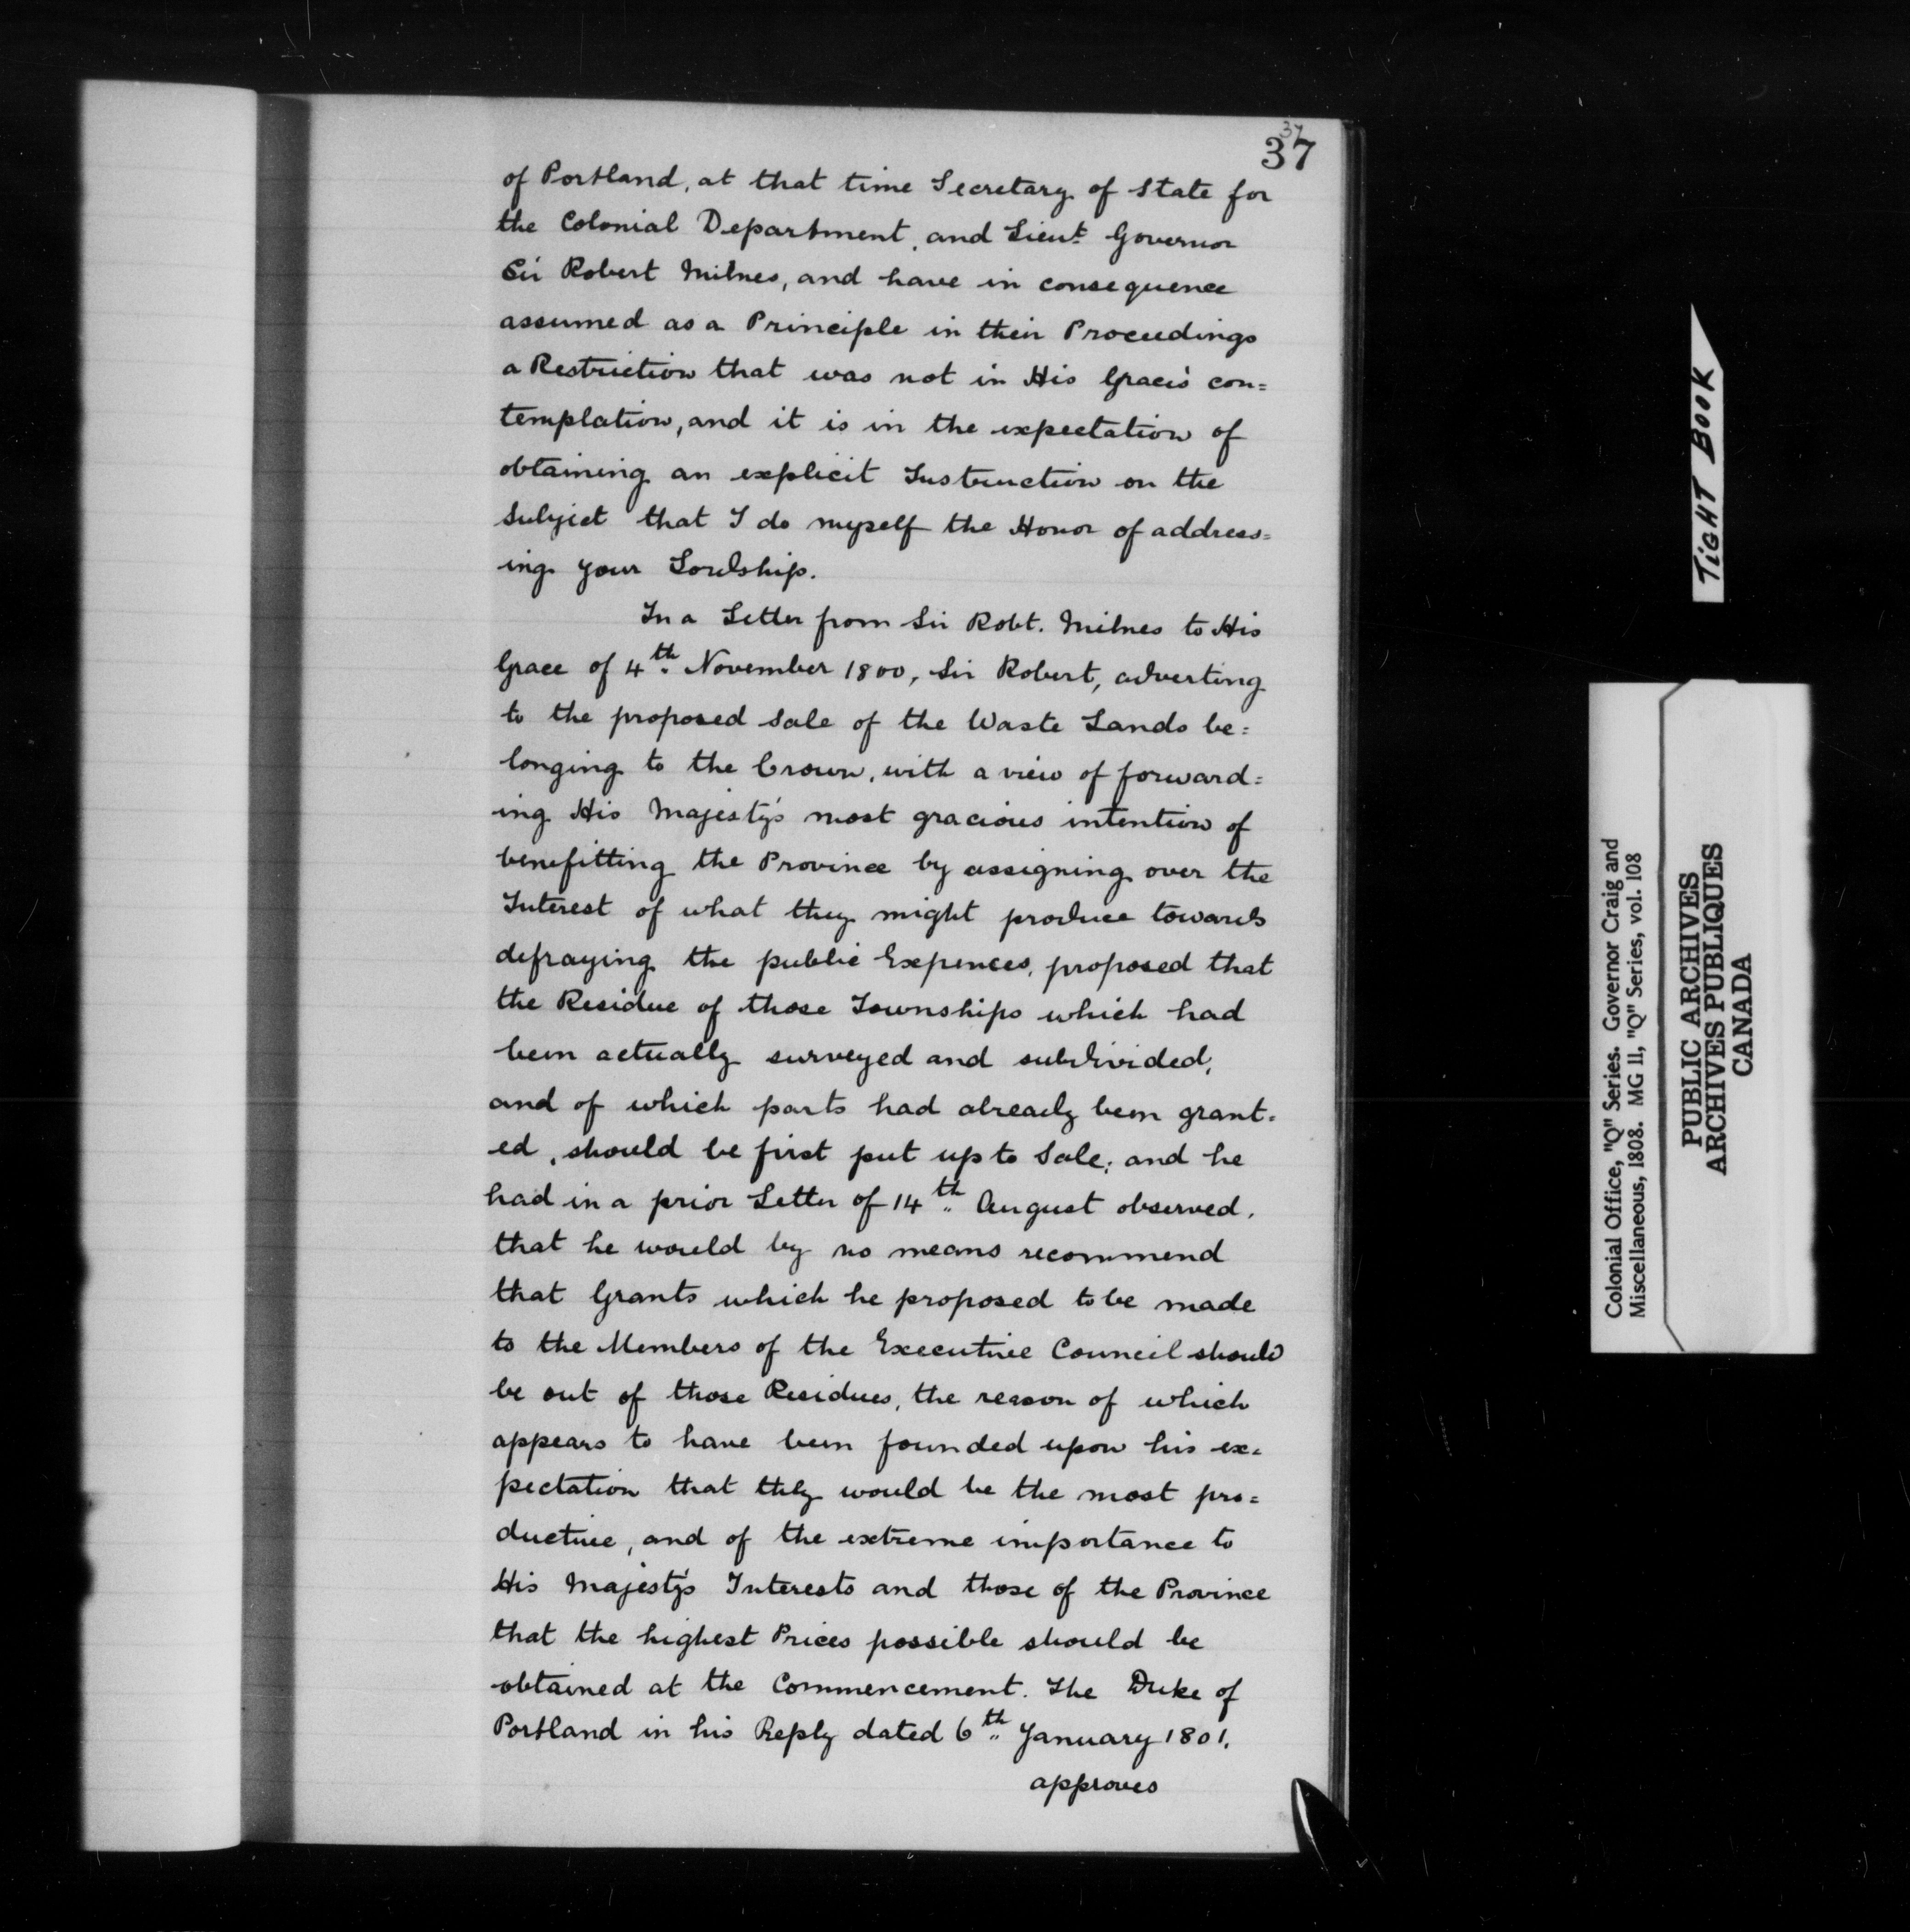 37
37
of Portland, at that time Secretary of State for
the Colonial Department, and Lieut. Governor
Sir Robert Milnes, and have in consequence
assumed as a Principle in their Proceedings
a Restriction that was not in His Grace's con=
templation, and it is in the expectation of
obtaining an explicit Instruction on the
subject that I do myself the Honor of address=
ing your Lordship.
In a Letter from Sir Robt. Milnes to His
Grace of 4th November 1800, Sir Robert, adverting
to the proposed sale of the Waste Lands be=
longing to the Crown, with a view of forward=
ing His Majesty's most gracious intention of
benefitting the Province by assigning over the
Interest of what they might produce towards
defraying the public Expences, proposed that
the Residue of those Townships which had
been actually surveyed and subdivided,
and of which parts had already been grant=
ed, should be first put up to Sale; and he
had in a prior Letter of 14th August observed,
that he would by no means recommend
that Grants which he proposed to be made
to the Members of the Executive Council should
be out of those Residues, the reason of which
appears to have been founded upon his ex=
pectation that they would be the most pro=
ductive, and of the extreme importance to
His Majesty's Interests and those of the Province
that the highest Prices possible should be
obtained at the Commencement. The Duke of
Portland in his Reply dated 6th January 1801,
approves
TIGHT BOOK
Colonial Office, "Q" Series. Governor Craig and
Miscellaneous, 1808. MG 11, "Q" Series, vol. 108
PUBLIC ARCHIVES
ARCHIVES PUBLIQUES
CANADA